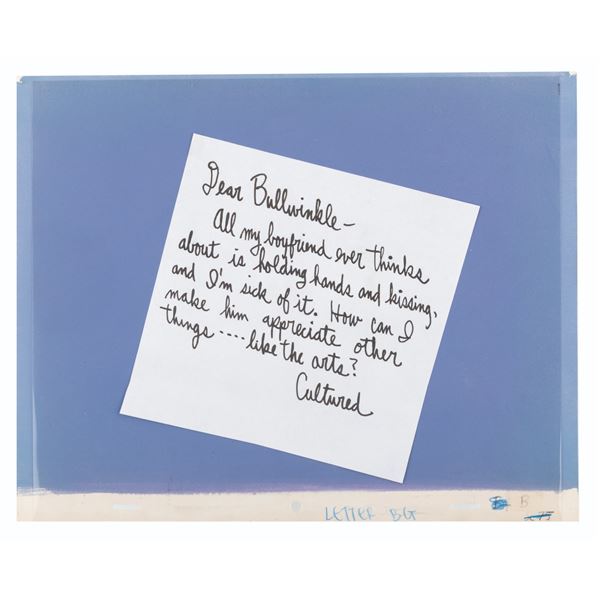 Dear Bullwinkle –
All my boyfriend ever thinks
about is holding hands and kissing,
and I'm sick of it. How can I
make him appreciate other
things ---- like the arts?
Cultured
LETTER BG
B